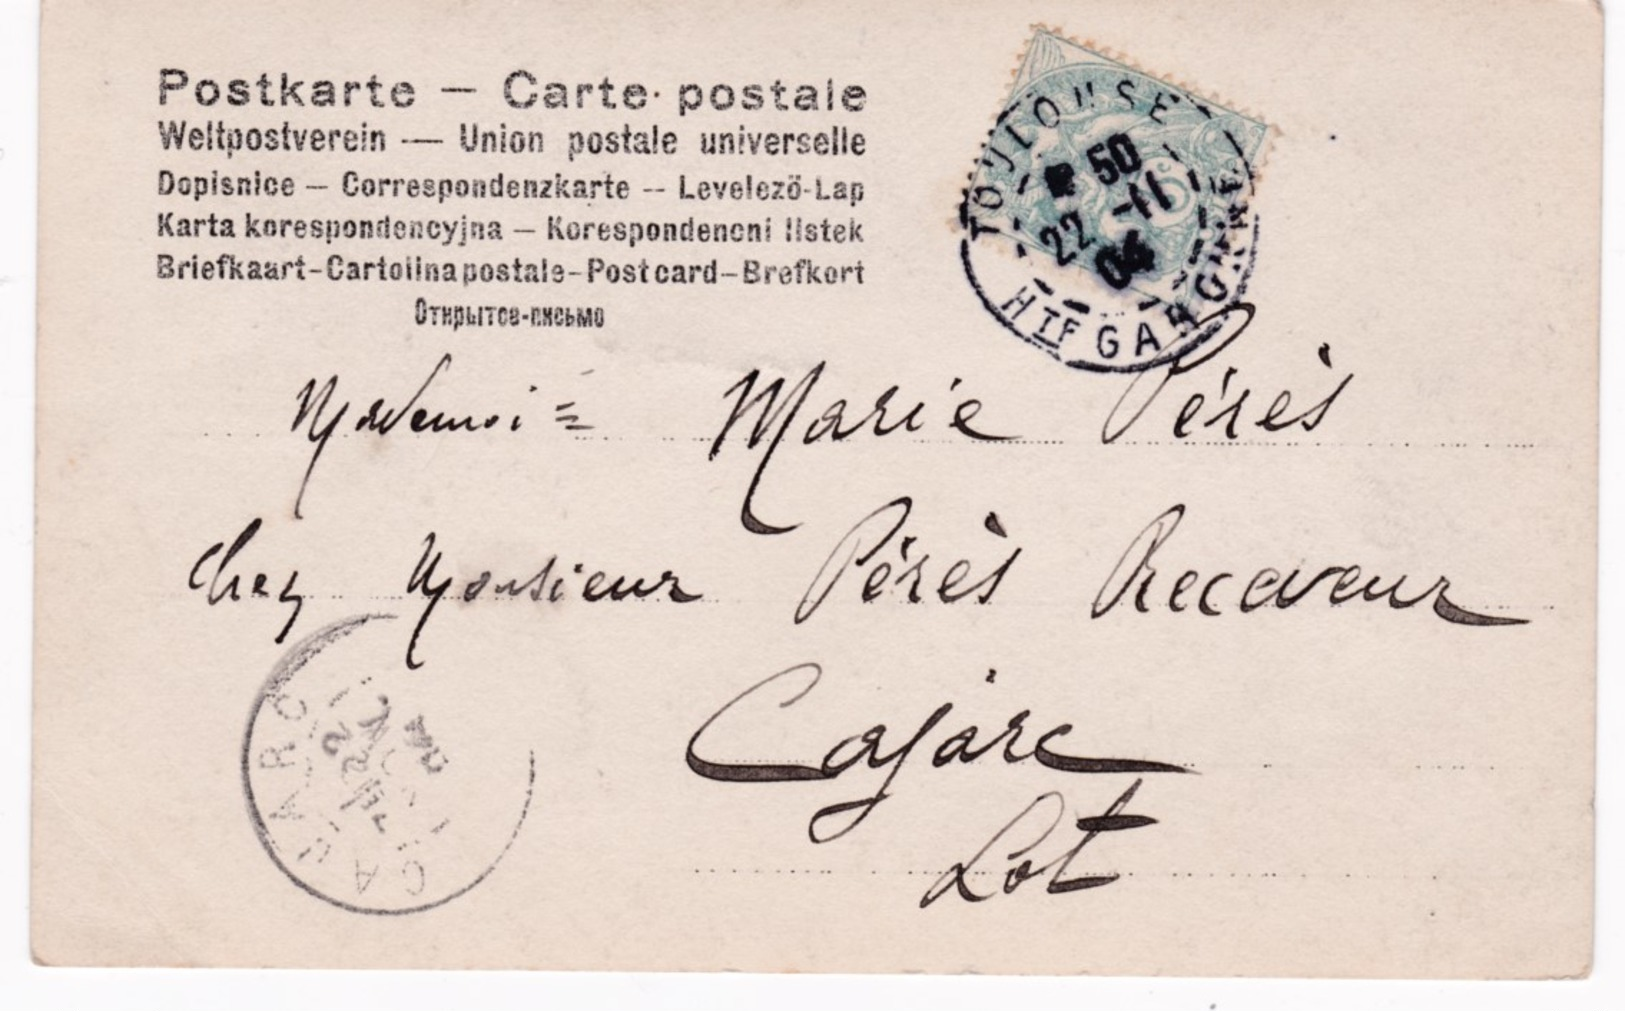 Postkarte — Carte postale
Weltpostverein — Union postale universelle
Dopisnice — Correspondenzkarte — Levelező-Lap
Karta korespondencyjna — Korespondencni listek
Briefkaart-Cartolina postale-Post card-Brefkort
Открытое-письмо
TOULOUSE
50
22 -11
04
HTE GARONNE
Mademoi=
Marie Pérès
Chez Monsieur Pérès Receveur
Cajarc
Lot
CAJARC
22
04